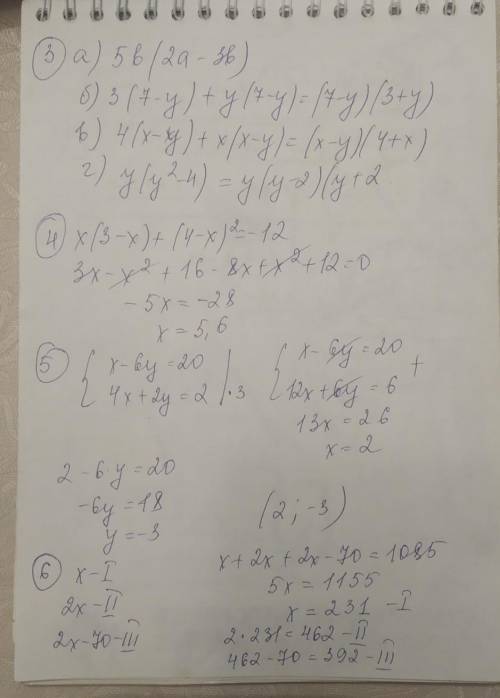 3 а) 5в(2а - 3в)
б) 3(7-y) + y(7-y) = (7-y)(3+y)
в) 4(x-y) + x(x-y) = (x-y)(4+x)
г) y(y²-4) = y(y-2)(y+2
4 x(3-x) + (4-x)² = -12
3x - x² + 16 - 8x + x² + 12 = 0
-5x = -28
x = 5,6
5 { x - 6y = 20
4x + 2y = 2 | · 3
{ x - 6y = 20
12x + 6y = 6 +
13x = 26
x = 2
2 - 6·y = 20
-6y = 18
y = -3
(2; -3)
6 x - I
2x - II
2x - 70 - III
x + 2x + 2x - 70 = 1085
5x = 1155
x = 231 - I
2 · 231 = 462 - II
462 - 70 = 392 - III